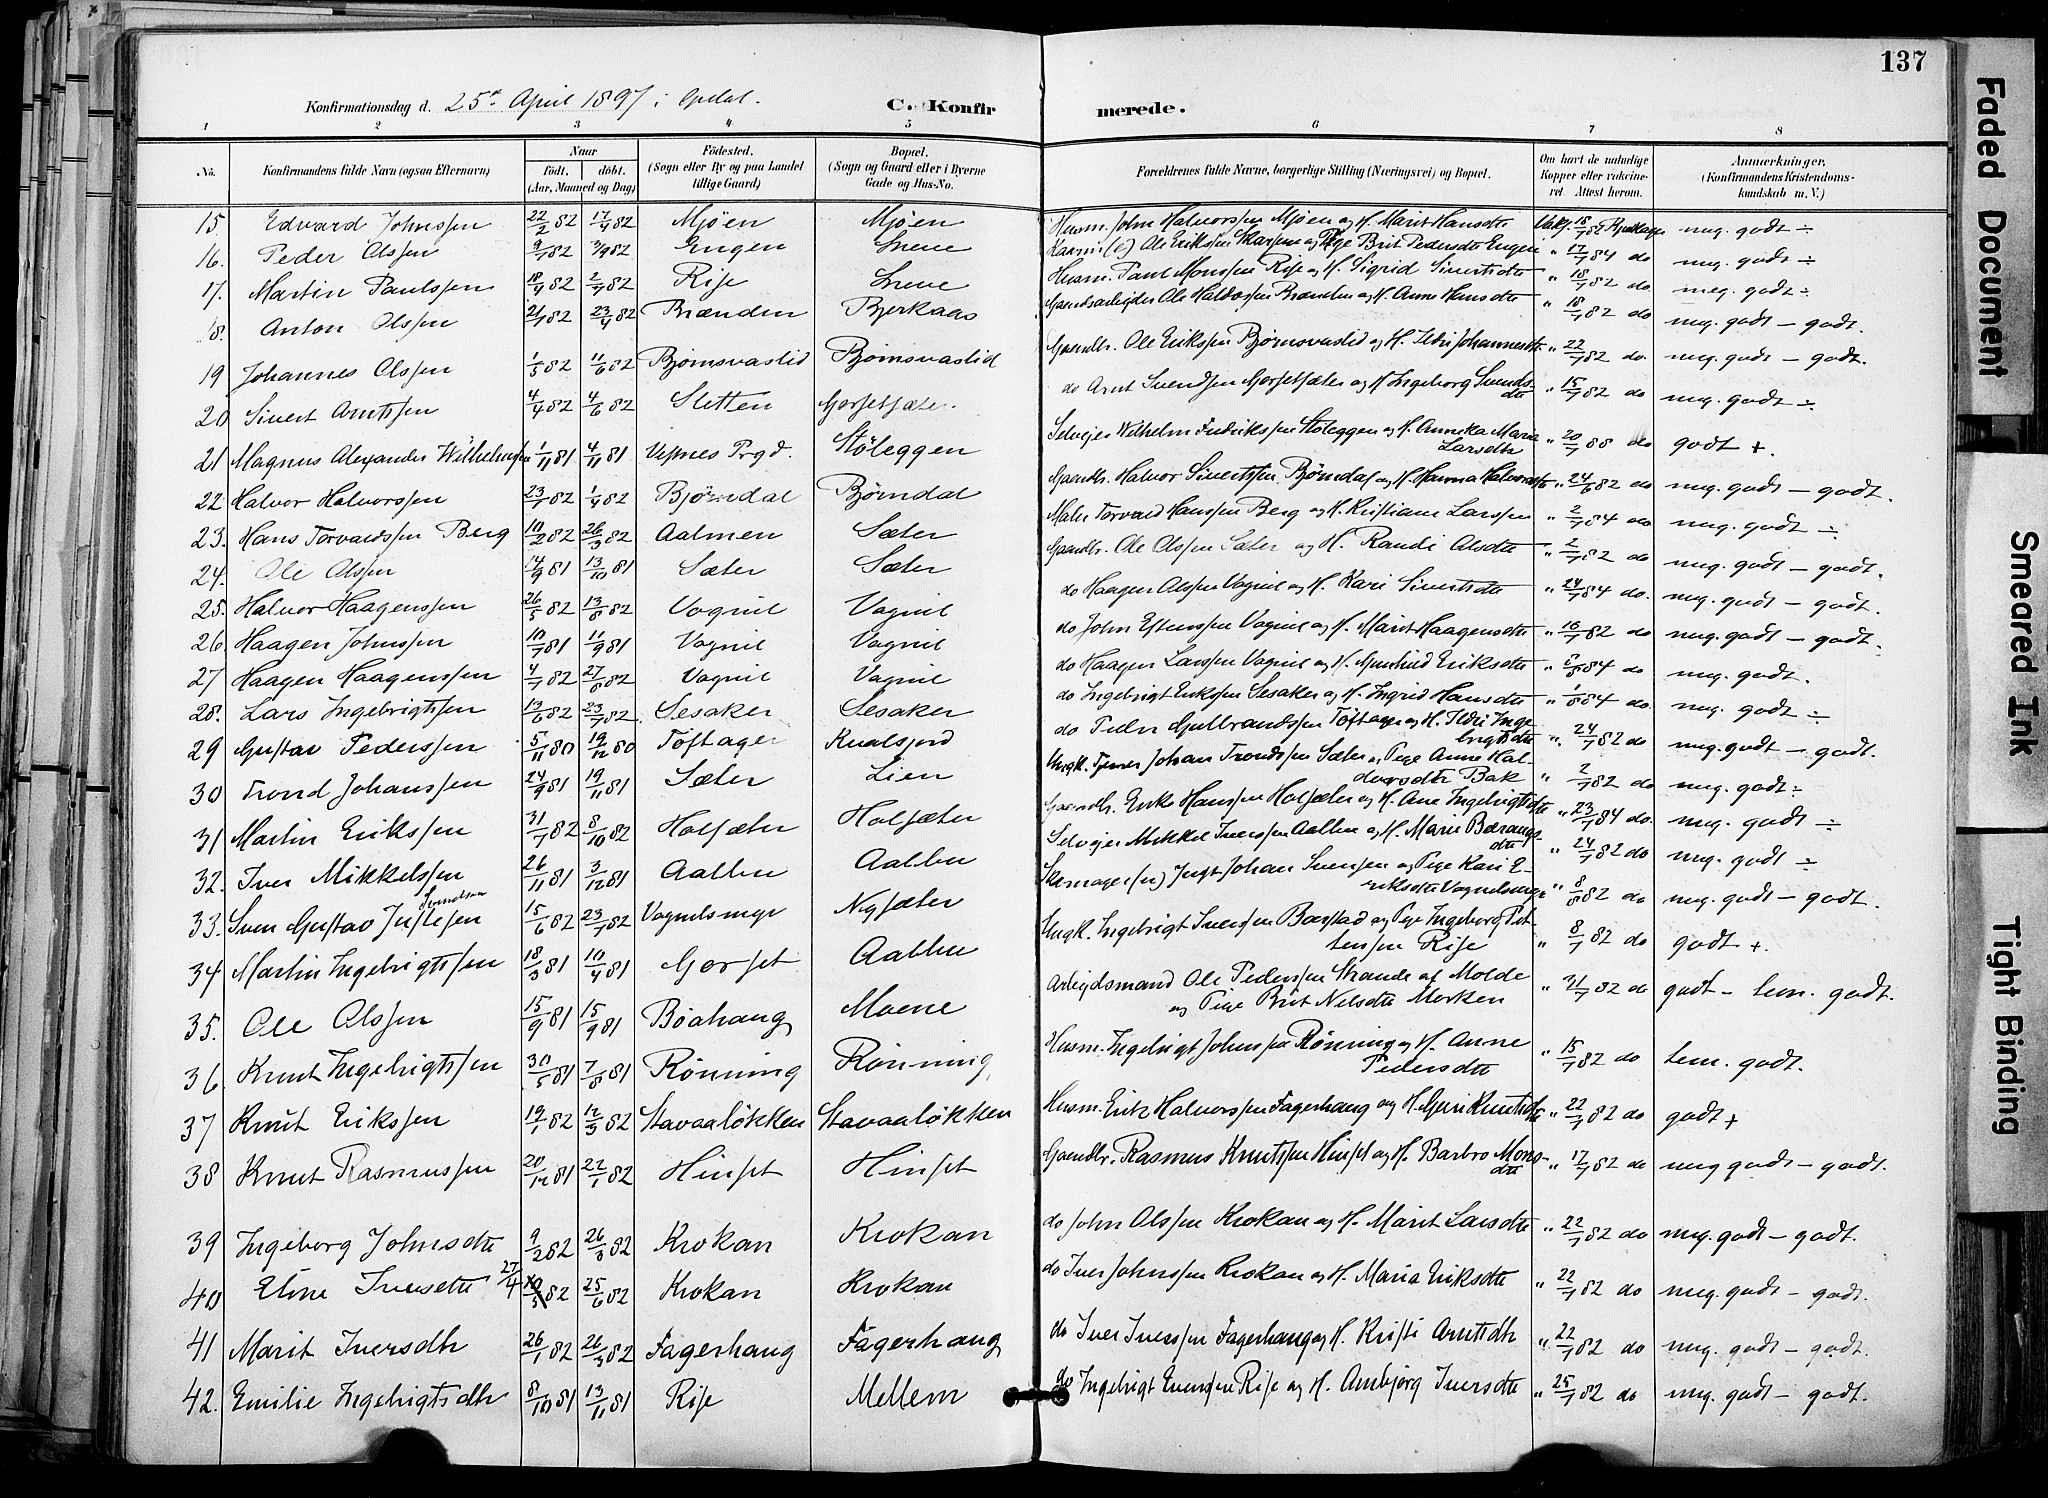 137
Konfirmationsdag d. 25de April 1897 i Opdal. C. Konfirmerede.
1 2 3 4 5 6 7 8
No. Konfirmandens fulde Navn (ogsaa Efternavn) Naar Født. døbt. (Aar, Maaned og Dag) Fødested. (Sogn eller By og paa Landet tillige Gaard) Bopæl. (Sogn og Gaard eller i Byerne Gade og Hus-No. Forældrenes fulde Navne, borgerlige Stilling (Næringsvei) og Bopæl. Om havt de naturlige Kopper eller vaccineret Attest herom. Anmærkninger, (Konfirmandens Kristendomskundskab m. V.)
15. Edvard Johnssen 22/2 82 17/4 82 Mjøen Mjøen Husm. John Halvorssen Mjøen og H. Marit Hansdtr Vakc. 18/7 82 meg. godt ÷
16. Peder Olssen 9/7 82 3/9 82 Engen Pige Brit Pedersdtr Engen " 17/7 84 do meg. godt ÷
17. Martin Paulssen 18/4 82 2/7 82 Rise Husm. Paul Monssen Rise og H. Sigrid Sivertsdtr " 18/7 82 do meg. godt ÷
18. Anton Olssen 21/1 82 23/4 82 Brænden Bjerkaas Gaardsarbeider Ole Haldossen Brænden og H. Anne Hansdtr " 18/7 82 do meg. godt – godt.
19 Johannes Olssen 1/5 82 11/6 82 Bjørnsvaslid Bjørnsvaslid Gaardbr. Ole Erikssen Bjørnsvaslid og H. Ildri Johannesdtr " 22/7 82 do. meg. godt – godt.
20 Sivert Arntssen 4/4 82 4/6 82 Sletten Gorsetsæter. do Arnt Svendssen Gorsetsæter og H Ingeborg Svendsdtr " 15/7 82 do meg. godt ÷
21 Magnus Alexander Wilhelmsen 1/11 81 4/11 81 Vefsnes Prgd. Støleggen Selveier Wilhelm Fredrikssen Støleggen og H. Annika Maria Larsdtr " 20/7 88 do godt +.
22 Halvor Halvorssen 23/1 82 1/4 82 Bjørndal Bjørndal Gaardbr. Halvor Sivertssen Bjørndal og H. Hanna Halvorsdtr " 24/6 82 do meg. godt – godt.
23. Hans Torvaldssen Berg 10/2 82 26/3 82 Aalmen Sæter Maler Torvald Hanssen Berg og H. Kristiane Larssen " 2/7 84 do meg. godt ÷
24. Ole Olssen 14/9 81 13/10 81 Sæter Sæter Gaardbr. Ole Olssen Sæter og H. Randi Olsdtr " 2/7 82 do meg. godt – godt.
25. Halvor Haagenssen 26/5 82 13/8 82 Vognil Vognil do Haagen Olssen Vognil og H. Kari Sivertsdtr " 24/7 84 do. meg. godt – godt.
26. Haagen Johnssen 10/7 81 11/9 81 Vognil Vognil do John Estenssen Vognil og H. Marit Haagensdtr " 16/7 82 do meg. godt – godt.
27 Haagen Haagenssen 4/7 82 27/8 82 Vognil Vognil do Haagen Larssen Vognil og H. Gunhild Eriksdtr do meg. godt.
28. Lars Ingebrigtssen 13/6 82 23/7 82. Sesaker Sesaker do Ingebrigt Erikssen Sesaker og H. Ingrid Hansdtr " 1/8 84 do. meg. godt ÷
29 Gustav Pederssen 5/11 80 19/12 80 Toftager do Peder Gulbrandssen Toftager og H. Ildri Ingebrigtsdtr " 24/7 82 do meg. godt – godt.
30 Trond Johanssen 24/9 81 19/11 81 Sæter Lien Ungk. Tjener Johan Trondssen Sæter og Pige Anne Haldorsdtr Bak " 2/7 82 do meg. godt ÷
31 Martin Erikssen 31/7 82 8/10 82 Holsæter Holsæter Gaardbr. Erik Hanssen Holsæter og H. Ane Ingebrigtsdtr " 23/7 84 do. meg. godt ÷
32. Iver Mikkelssen 26/11 81 3/12 81 Aalbu Aalbu Selveier Mikkel Iverssen Aalbu og H. Marie dtr " 24/7 82 do meg. godt ÷
33. Sven Gustav Justesen Svendsen 15/6 82 23/7 82 Vognilsmyr Nysæter Skomager Johan Svensen og Pige Kari Eriksdtr Vognilsmyr " 8/8 82 do meg. godt – godt.
34 Martin Ingebrigtssen 18/3 81 10/4 81 Gorset Aalbu Ungk. Ingebrigt Iverssen Baarstad og Pige Ingeborg Rise " 8/7 82 do godt +.
35. Ole Olssen 15/9 81 15/9 81 Bøahaug Moene Arbeidsmand Ole Pederssen Strande af Molde og Pige Brit Nilsdtr Morken " 21/7 82 do godt – tem. godt.
36. Knut Ingebrigtssen 30/5 81 7/8 81 Rønning Rønning Husm. Ingebrigt Johnssen Rønning og H. Anne Pedersdtr " 15/7 82 do tem. godt.
37 Knut Erikssen 19/1 82 12/3 82 Stavaaløkken Stavaaløkken Husm. Erik Halvorssen Fagerhaug og H. Guri Knutsdtr " 22/7 82 do godt +
38 Knut Rasmussen 20/12 81 22/1 82 Hinset Hinset Gaardbr. Rasmus Knutssen Hinset og H. Barbro Monsdtr " 17/7 82 do meg godt – godt.
39 Ingeborg Johnsdtr 9/2 82 26/3 82 Krokan Krokan do John Olssen Krokan og H. Marit Larsdtr " 22/7 82 do meg. godt – godt.
40 Eline Iversdtr 27/4 82 25/6 82 Krokan Krokan do Iver Johnssen Krokan og H. Maria Eriksdtr " 22/7 82 do meg. godt – godt.
41 Marit Iversdtr 26/1 82 26/3 82 Fagerhaug Fagerhaug do Iver Iverssen Fagerhaug og H. Kristi Arntsdtr " 22/7 82 do meg. godt – godt.
42. Emilie Ingebrigtsdtr 8/10 81 13/11 81 Rise Mellem do Ingebrigt Evensen Rise og H. Anbjørg Iversdtr " 25/7 82 do meg. godt – godt.
Faded Document
Smeared Ink
Tight Binding